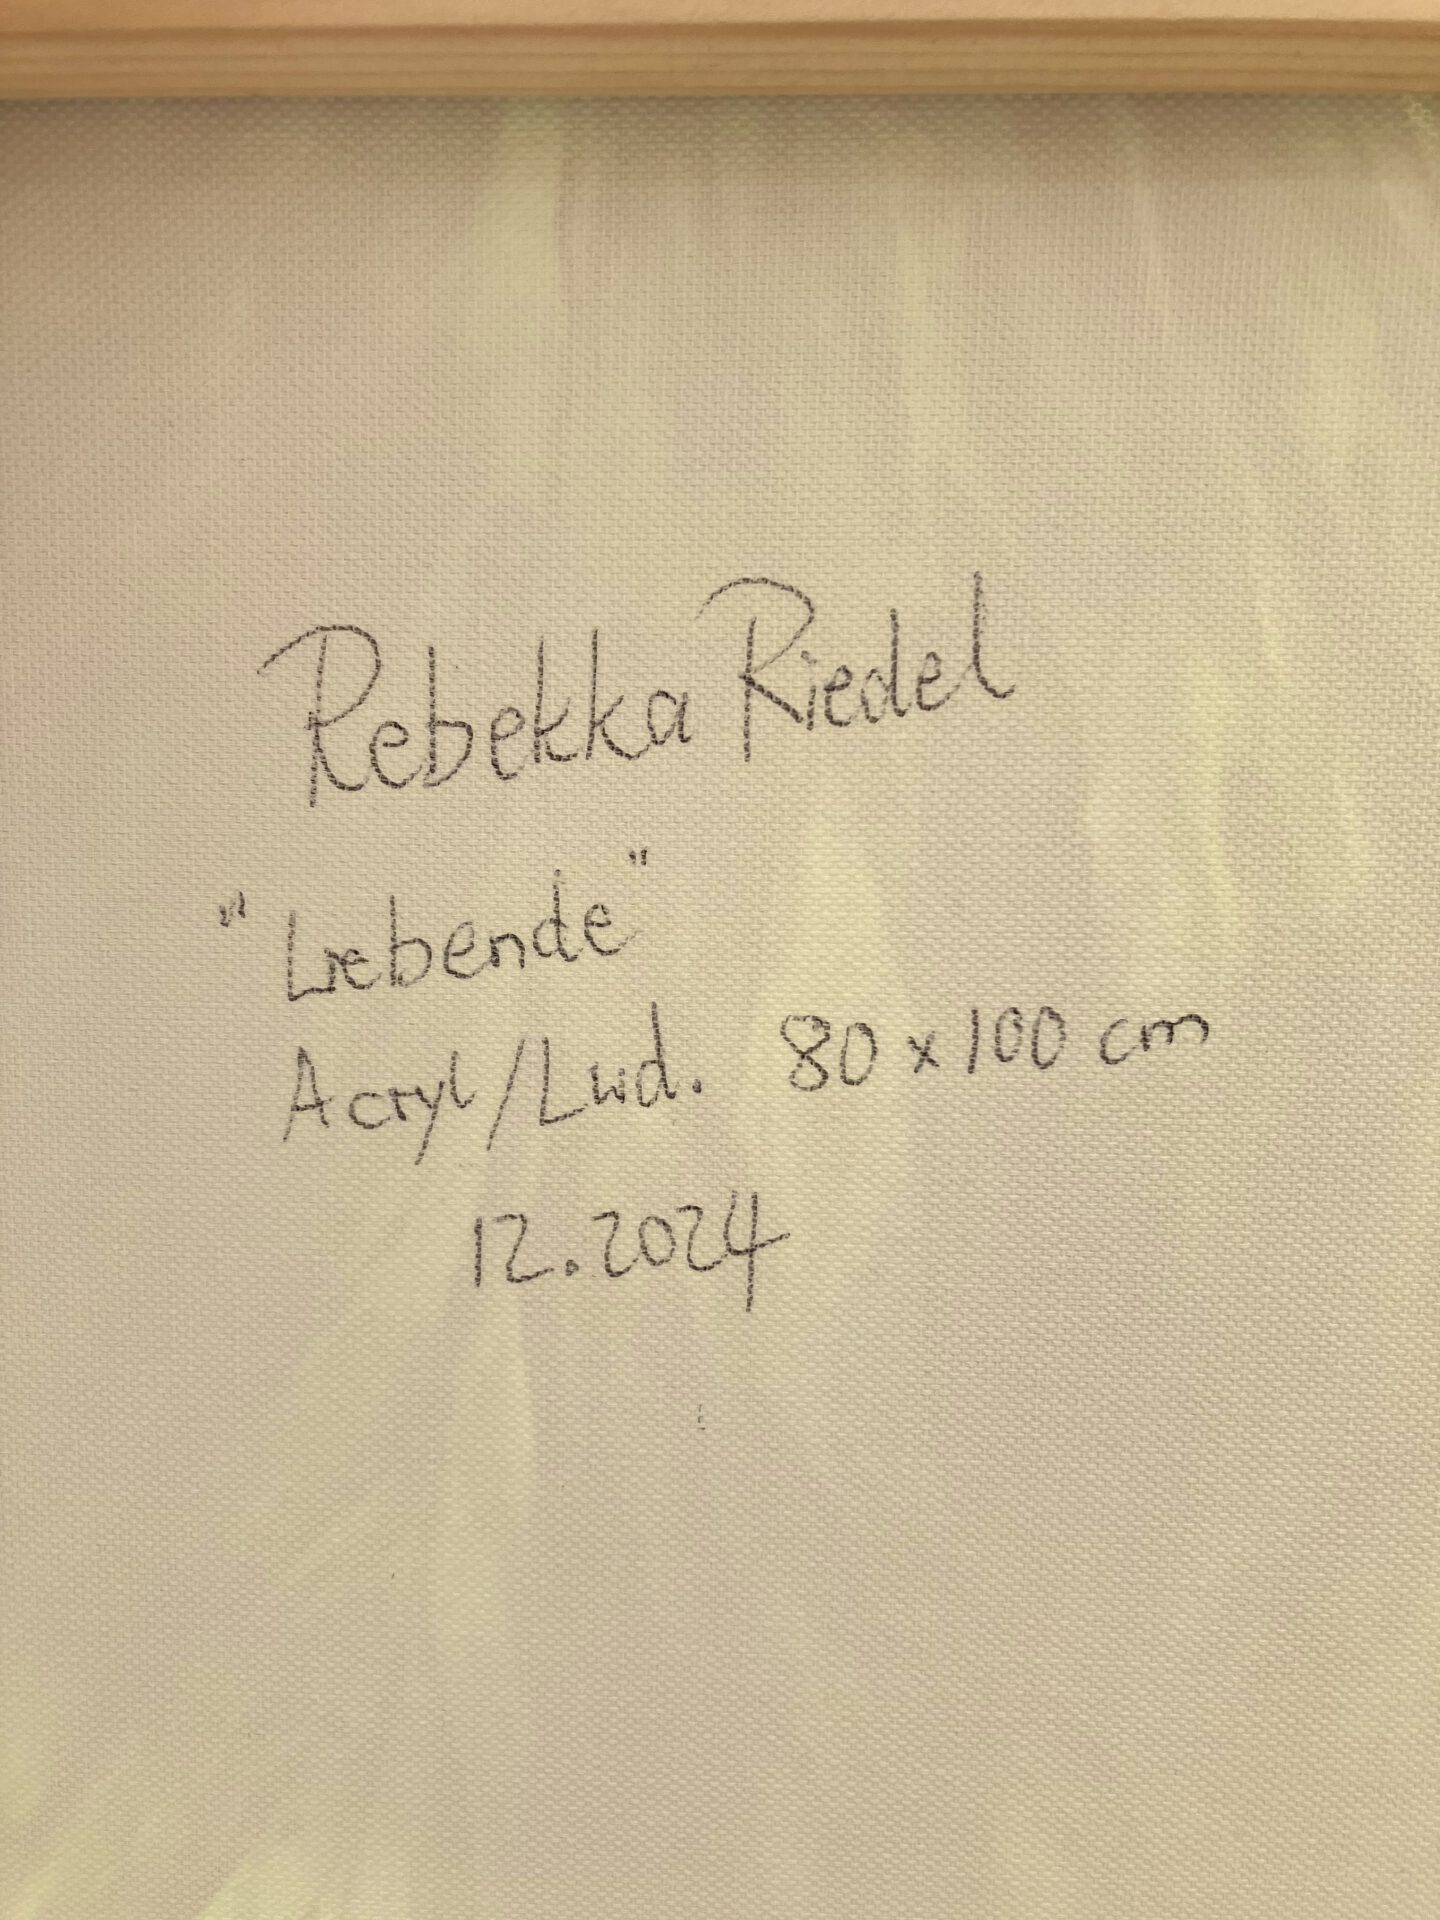 Rebekka Riedel
"Liebende"
Acryl/Lwd. 80 x 100 cm
12.2024